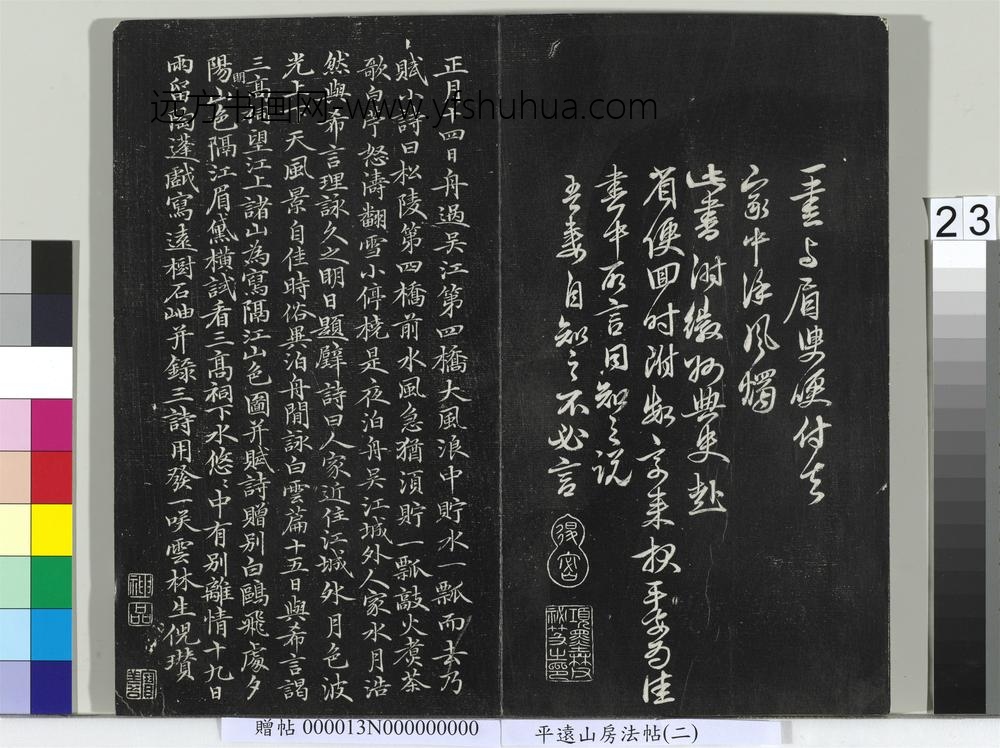 一畫與眉叟便付去
家中泽風燭
此書附徽州典史赴
省便回时附數字来报平安為佳
書中所言因知之说
吾妻自知之不必言
項墨林父秘笈之印
正月十四日舟過吳江第四橋大風浪中貯水一瓢而去乃
賦小詩曰松陵第四橋前水風急猶須貯一瓢敲火煑茶
歌白苧怒濤翻雪小停橈是夜泊舟吳江城外人家水月浩
然與希言理詠久之明日題壁詩曰人家近住江城外月色波
光上下天風景自佳時俗異泊舟閒詠白雲篇十五日與希言謁
三高祠望江上諸山為寫隔江山色圖并賦詩贈別白鷗飛處夕
陽明山色隔江眉黛橫試看三高祠下水悠〻中有別離情十九日
雨留閶逢戲寫遠樹石岫并錄三詩用發一咲雲林生倪瓚
神品
远方书画网-www.yfshuhua.com
23
贈帖 000013N000000000
平遠山房法帖(二)